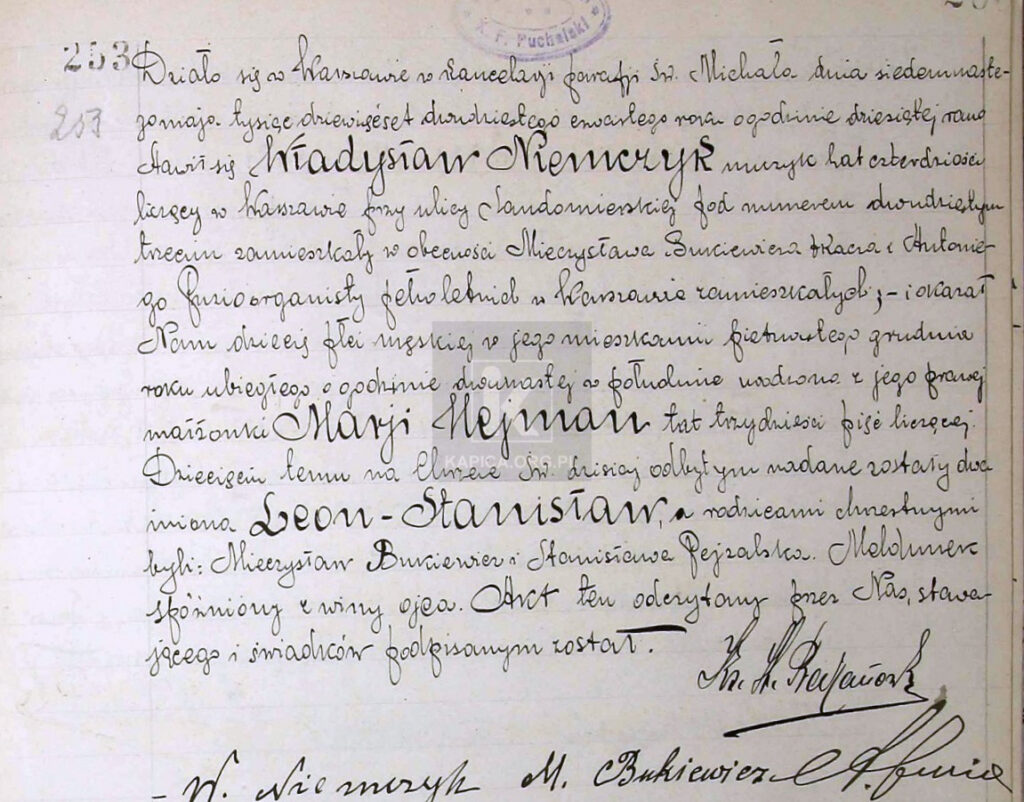 K. F. Puchalski
253
253
Działo się w Warszawie w kancelaryi parafji Św. Michała dnia siedemnaste-
go maja tysiąc dziewięćset dwudziestego czwartego roku o godzinie dziesiątej rano
stawił się Władysław Niemczyk muzyk lat czterdzieści
liczący w Warszawie przy ulicy Sandomierskiej pod numerem dwudziestym
trzecim zamieszkały w obecności Mieczysława Bukiewicza tkacza i Antonie-
go Furio organisty pełnoletnich w Warszawie zamieszkałych; - i okazał
Nam dziecię płci męskiej w jego mieszkaniu piętnastego grudnia
roku ubiegłego o godzinie dwunastej w południe urodzone z jego prawej
małżonki Marji Hejman lat trzydzieści pięć liczącej.
Dziecięciu temu na Chrzcie Św. dzisiaj odbytym nadane zostały dwa
imiona Leon-Stanisław, a rodzicami chrzestnymi
byli: Mieczysław Bukiewicz i Stanisława Pejzalska. Meldunek
spóźniony z winy ojca. Akt ten odczytany przez Nas, stawa-
jącego i świadków podpisanym został.
KAPICA.ORG.PL
Ks. H.
- W. Niemczyk M. Bukiewicz A. Furio